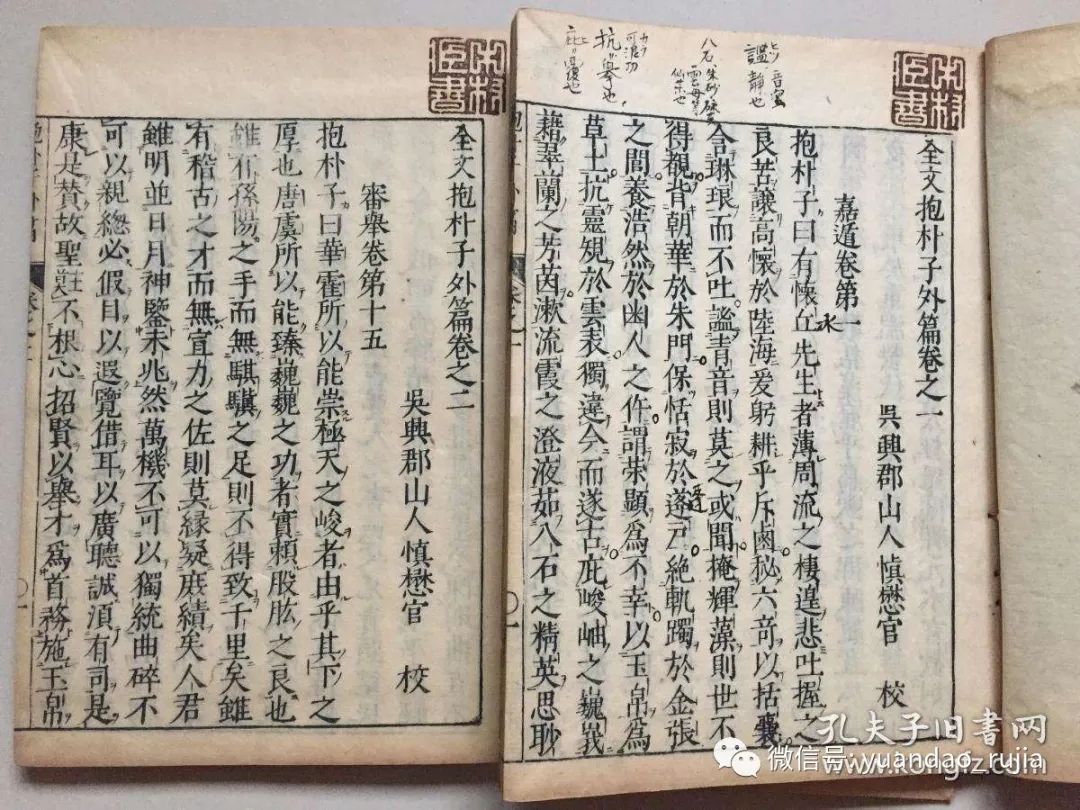 謐 音蜜 靜也
八石、朱砂
抗 舉也
全文抱朴子外篇卷之一
吳興郡山人愼懋官 校
嘉遁卷第一
抱朴子曰有懷丘先生者薄周流之棲遑悲吐握之
良苦讓高懷於陸海爰躬耕乎斥鹵秘六奇以括囊
含琳琅而不吐謐青音則莫之或聞掩輝藻則世不
得覩背朝華於朱門保恬寂於蓬戸絶軌躅於金張
之閭養浩然於幽人之仵謂榮顯爲不幸以玉帛爲
草土抗靈規於雲表獨違今而遂古庇峻岫之巍峩
藉翠蘭之芳茵漱流霞之澄液茹八石之精英思眇
全文抱朴子外篇卷之二
吳興郡山人愼懋官 校
審舉卷第十五
抱朴子曰華霍所以能崇極天之峻者由乎其下之
厚也唐虞所以能臻巍巍之功者實賴股肱之良也
雖有孫陽之手而無騏驥之足則不得致千里矣雖
有稽古之才而無宣力之佐則莫緣凝庶績矣人君
雖明並日月神鑒未兆然萬機不可以獨統曲碎不
可以親總必假目以遐覽借耳以廣聽誠須有司是
康是賛故聖莊不根心招賢以舉才爲首務施玉帛
孔夫子旧书网
微信号: yuandao_rujia
www.kongfz.com